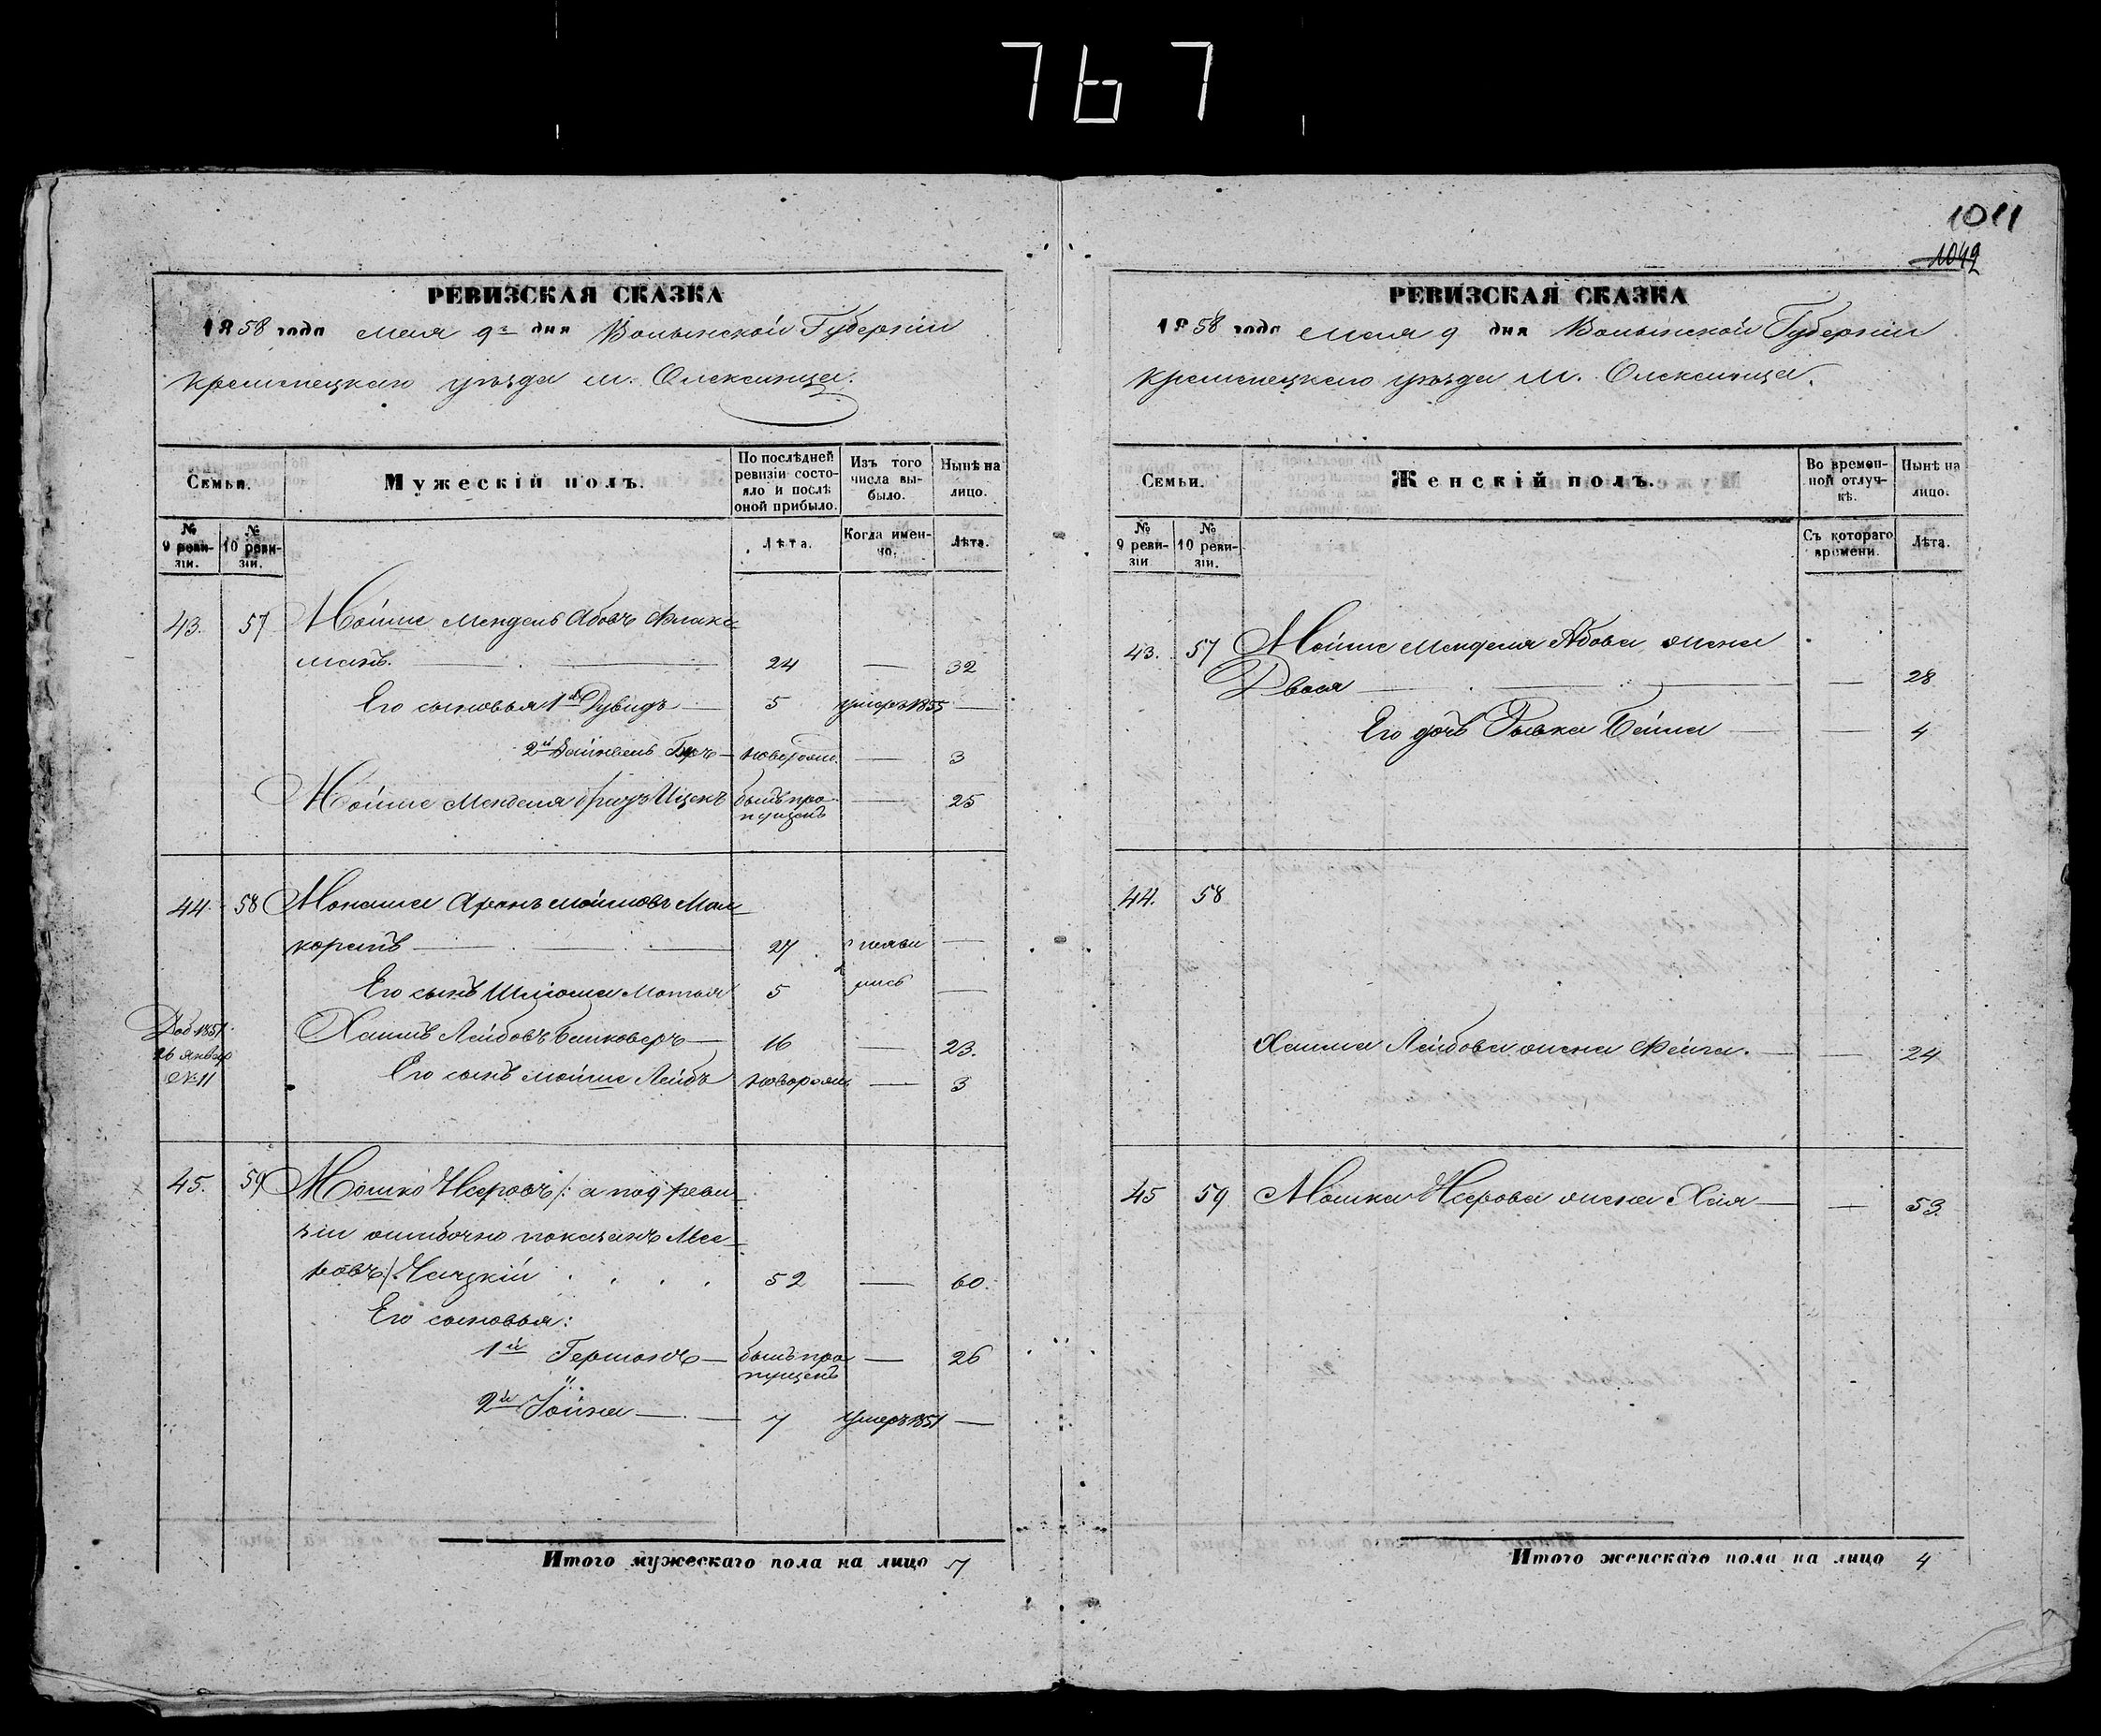 767
1011
1049
РЕВИЗСКАЯ СКАЗКА
1858 года мая 9го дня Волынской Губерніи
Кременецкаго уѣзда м. Олексинца.
Семьи.
Мужескій полъ.
По послѣдней ревизіи состояло и послѣ оной прибыло.
Изъ того числа выбыло.
Нынѣ на лицо.
№ 9 ревизіи.
№ 10 ревизіи.
Лѣта.
Когда именно.
Лѣта.
43. 57 Мойше Мендель Абовъ Флакс
манъ. — 24 — 32
Его сыновья 1й Дувидъ — 5 умеръ 1855 —
2й Вайнвель Геръ — новорожд. — 3
Мойше Менделя братъ Ицекъ былъ пропущенъ — 25
44. 58 Монаша Аронъ Мошковъ Мал
коритъ — 27 —
Его сынъ Шлioма Мотья 5 —
Доб. 1851 Хаимъ Лейбовъ Башковеръ — 16 — 23.
26 январ Его сынъ Мойше Лейбъ новорожд. — 3
№ 11
45. 59 Мошко Иееровъ /: а под реви
зіи ошибочно показанъ Мее
ровъ :/ Чацкій 52 — 60.
Его сыновья:
1й Гершонъ — былъ пропущенъ — 26
2й Іойна — 7 умеръ 1851 —
Итого мужескаго пола на лицо 7
РЕВИЗСКАЯ СКАЗКА
1858 года Мая 9 дня Волынской Губерніи
Кременецкаго уѣзда м. Олексинца.
Семьи.
Женскій полъ.
Во временной отлучкѣ.
Нынѣ на лицо.
№ 9 ревизіи
№ 10 ревизіи.
Съ котораго времени.
Лѣта.
43. 57 Мойше Менделя Абова жена
Двося — — 28
Его дочь Рывка Бейла — — 4
44. 58
Хаима Лейбова жена Фейга. — — 24
45 59 Мошка Иерова жена Хая — — 53.
Итого женскаго пола на лицо 4